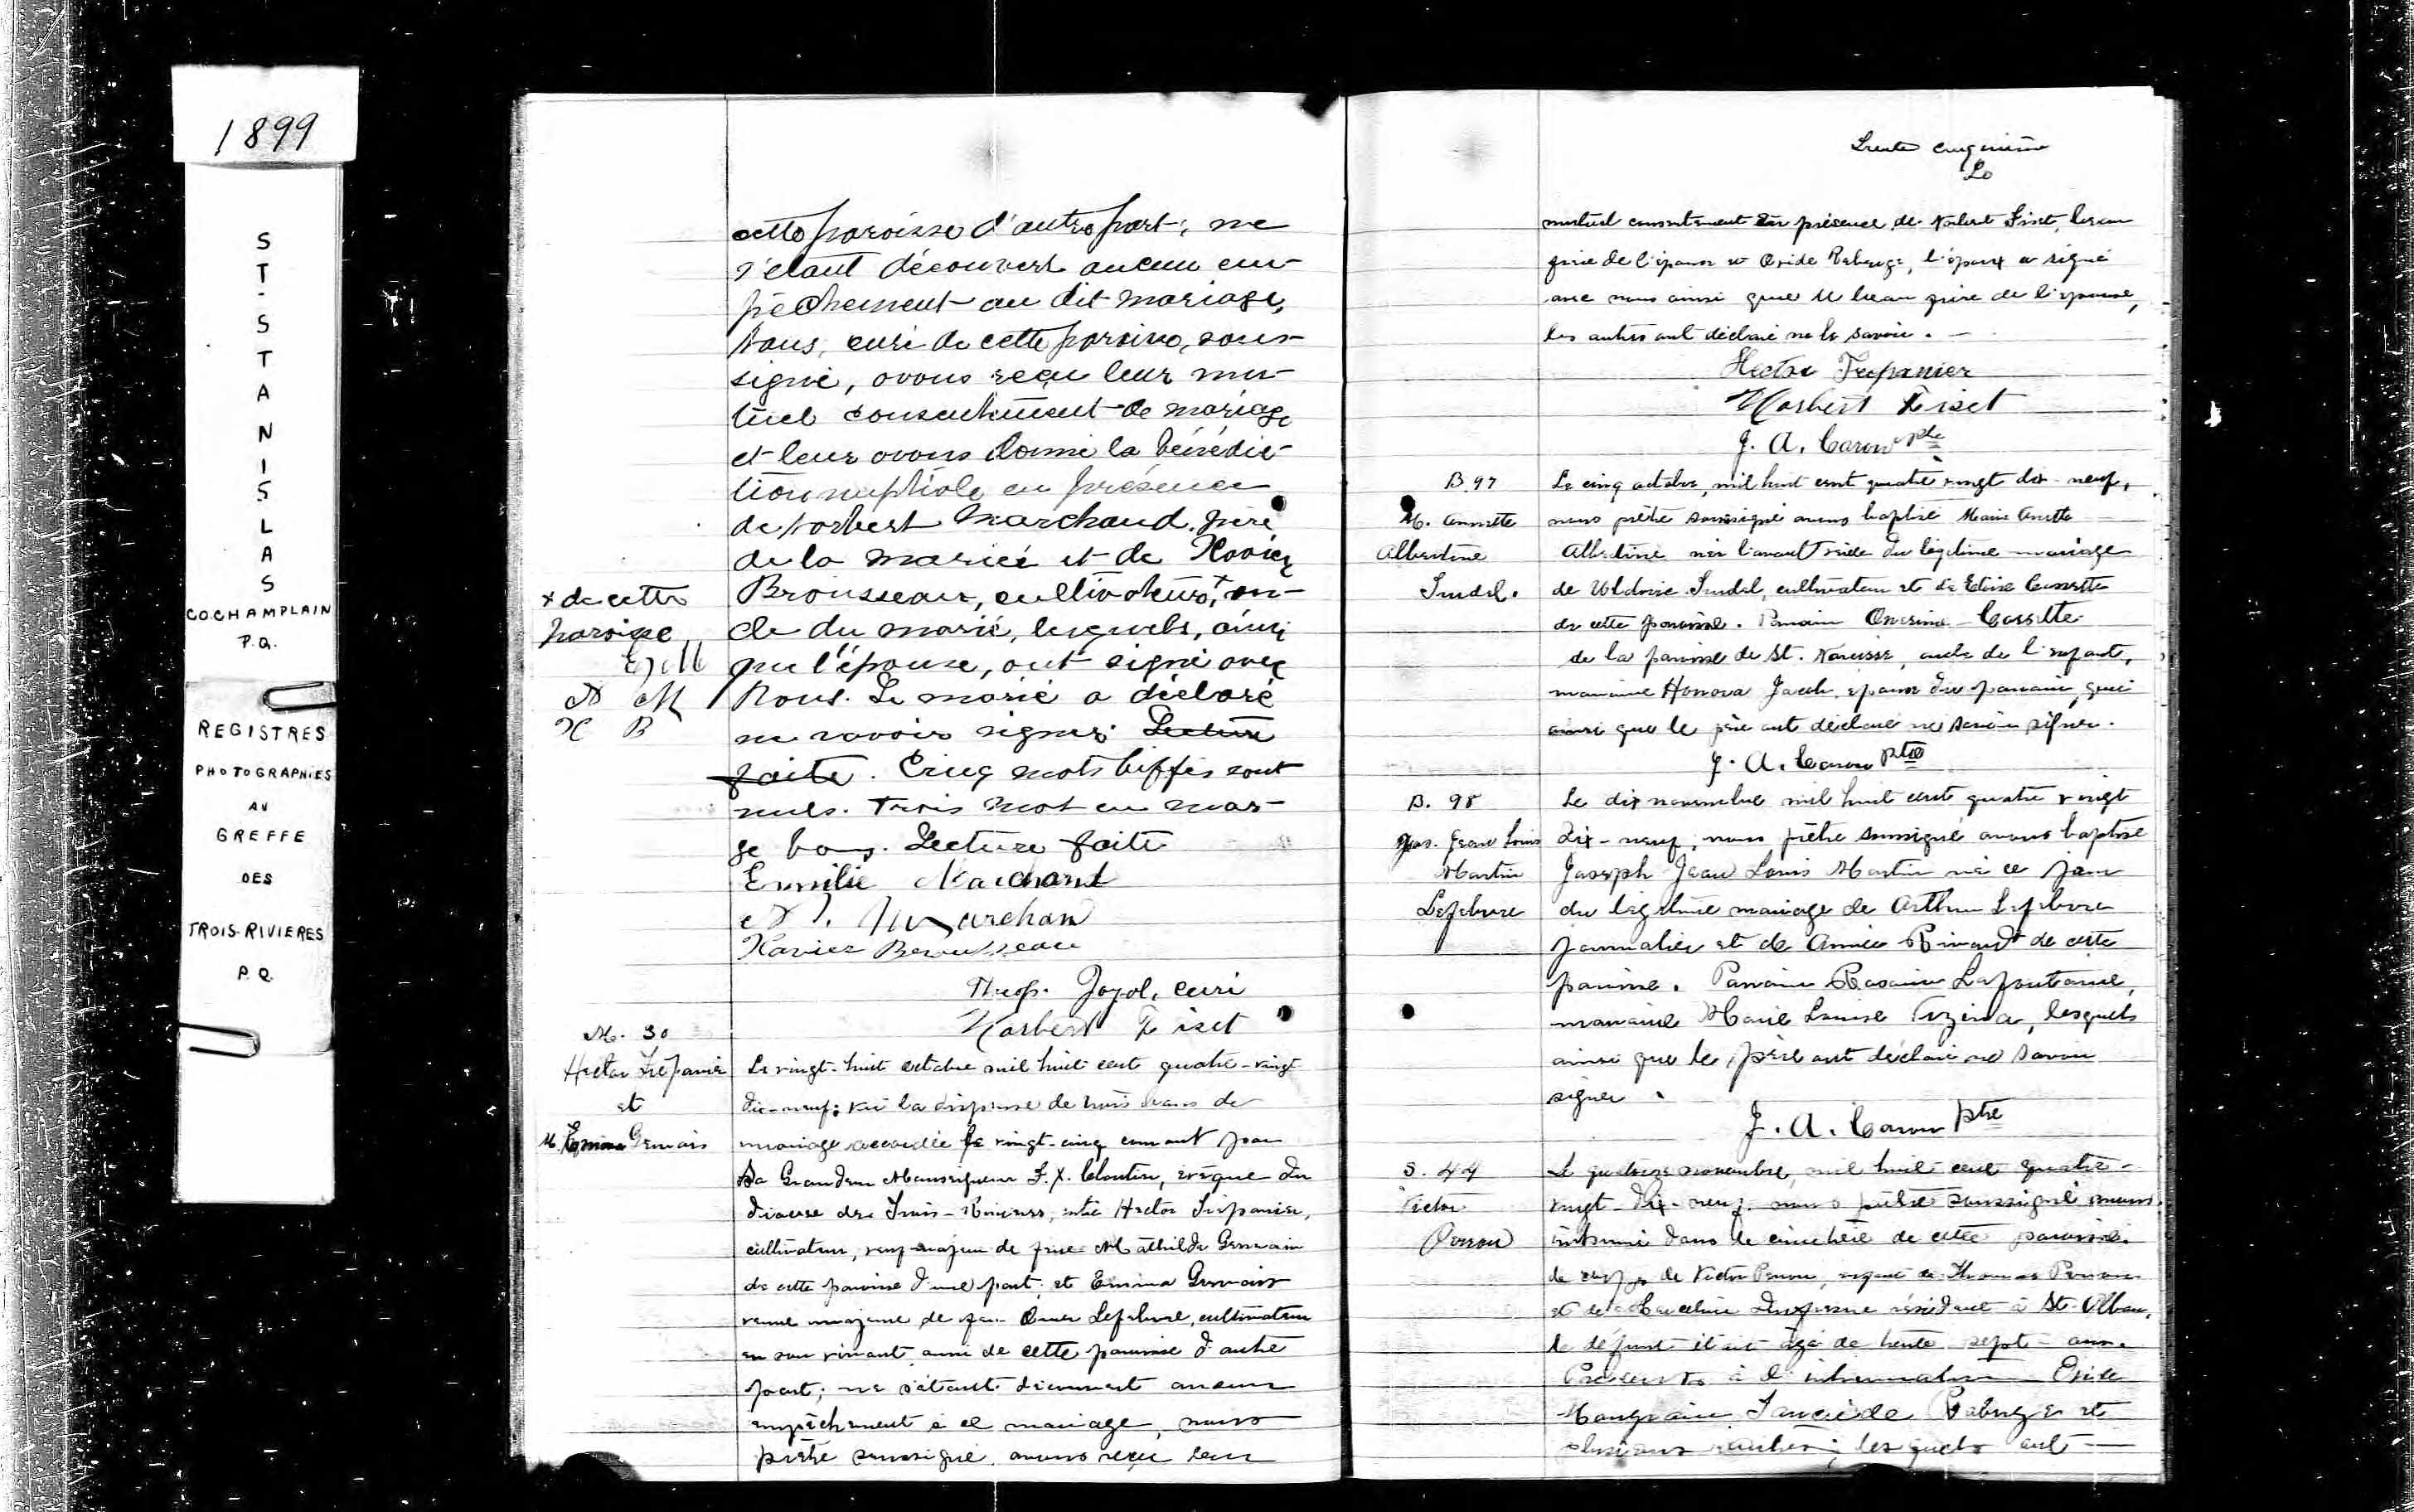 1899
ST. STANISLAS
CO. CHAMPLAIN
P.Q.
REGISTRES
PHOTOGRAPHIES
AU
GREFFE
DES
TROIS-RIVIERES
P.Q.
cette paroisse d'autre part; ne
s'étant découvert aucun em-
pêchement au dit mariage,
Nous, curé de cette paroisse, sous-
signé, avons reçu leur mu-
tuel consentement de mariage
et leur avons donné la bénédic-
tion nuptiale en présence
de Norbert Marchand, père
de la mariée et de Xavier
Brousseau, cultivateurs,+ on-
cle du marié, lesquels, ainsi
que l'épouse, ont signé avec
Nous. Le marié a déclaré
ne savoir signer. Lecture
faite. Cinq mots biffés sont
nuls. Trois mot en mar-
ge bons. Lecture faite
+ de cette
paroisse
E M
N M
X B
Emilie Marchand
N. Marchan
Xavier Brousseau
Joyal, curé
Norbert Fiset
M. 30
Hector Trépanier
et
M. Emma Gervais
Le vingt-huit octobre mil huit cent quatre-vingt
dix-neuf; vu la dispense de trois bans de
mariage accordée le vingt-cinq courant par
Sa Grandeur Monseigneur F. X. Cloutier, évêque du
diocèse des Trois-Rivières, entre Hector Trépanier,
cultivateur, veuf majeur de feue Mathilde Germain
de cette paroisse d'une part; et Emma Gervais
veuve majeure de feu Omer Lefebvre, cultivateur
en son vivant aussi de cette paroisse d'autre
part; ne s'étant découvert aucun
empêchement à ce mariage, nous
prêtre soussigné avons reçu leur
Trente cinquième
mutuel consentement en présence de Norbert Fiset, beau
père de l'époux et Ovide Baberge, l'époux a signé
avec nous ainsi que le beau père de l'épouse,
les autres ont déclaré ne le savoir.
Hector Trepanier
Norbert Fiset
J. A. Caron ptre
B. 97
M. Annette
Albertine
Trudel.
Le cinq octobre, mil huit cent quatre vingt dix-neuf,
nous prêtre soussigné avons baptisé Marie Anette
Albertine née l'avant veille du légitime mariage
de Trudel, cultivateur et de Cossette
de cette paroisse. Parrain Onesime Cossette
de la paroisse de St. Narcisse, oncle de l'enfant,
marraine Honora Jacob, épouse du parrain, qui
ainsi que le père ont déclaré ne savoir signer.
J. A. Caron ptre
B. 98
Jos. Jean Louis
Martin
Lefebvre
Le dix novembre mil huit cent quatre vingt
dix-neuf, nous prêtre soussigné avons baptisé
Joseph Jean Louis Martin né ce jour
du légitime mariage de Arthur Lefebvre
journalier et de Annie Rivard de cette
paroisse. Parrain Lafontaine,
marraine Marie Louise, lesquels
ainsi que le père ont déclaré ne savoir
signer.
J. A. Caron ptre
S. 44
Victor
Perron
Le quatorze novembre, mil huit cent quatre-
vingt-dix-neuf nous prêtre soussigné avons
inhumé dans le cimetière de cette paroisse
le corps de Victor Perron, de Thomas Perron
et de Marceline Dufresne résidant à St. Alban,
le défunt était âgé de trente sept ans.
Présents à l'inhumation Ovide
Mongrain Baberge et
plusieurs autres; lesquels ont